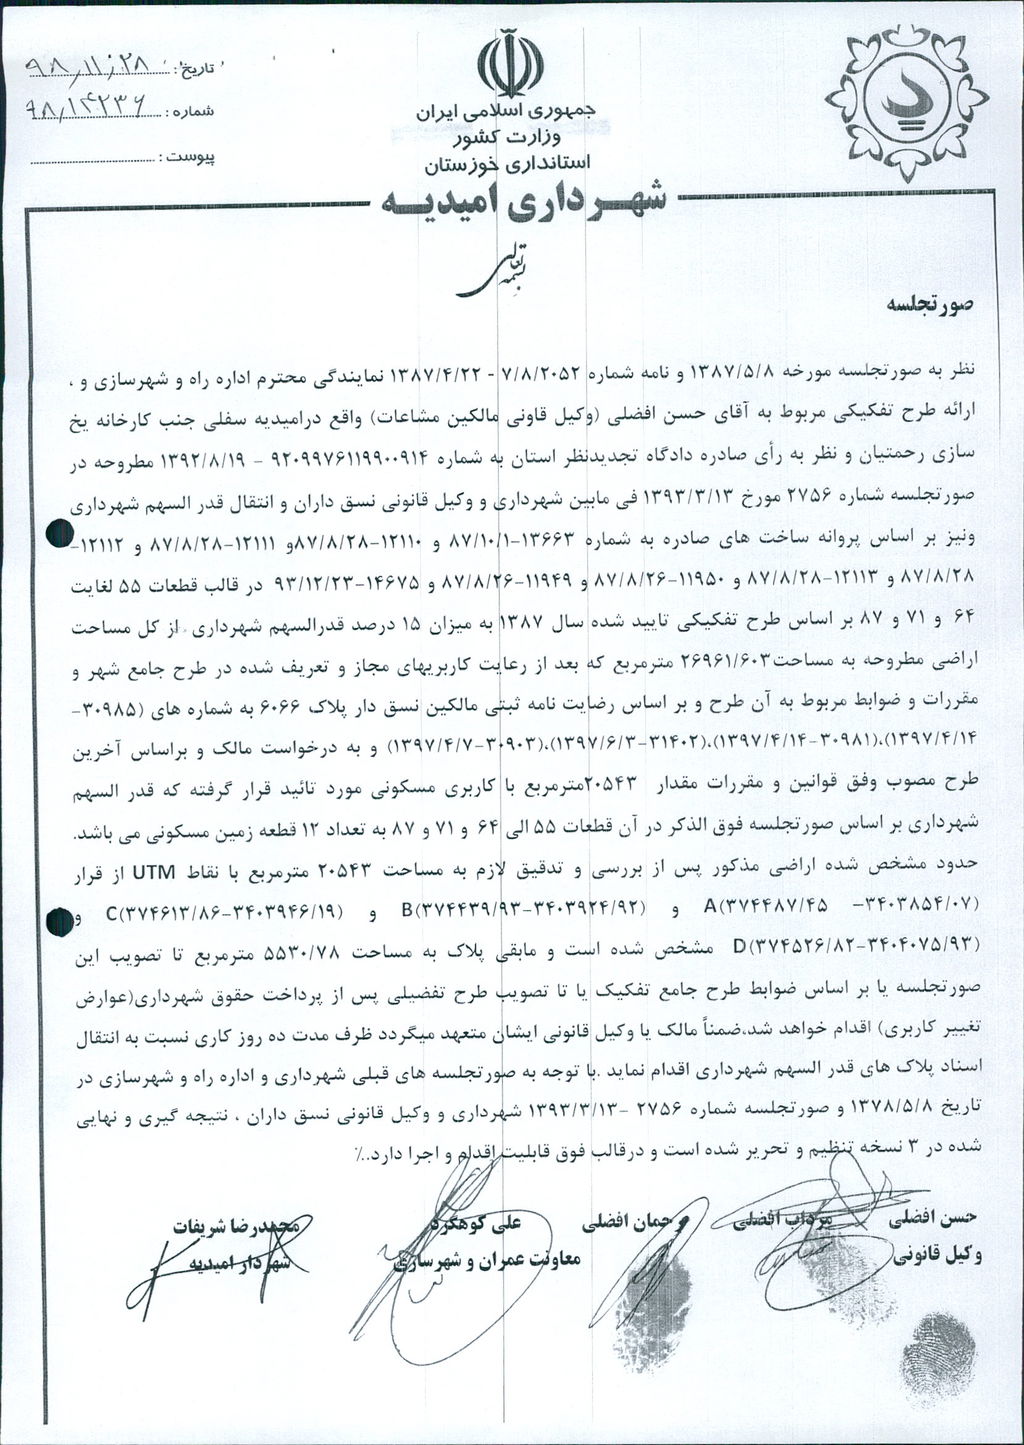 تاریخ: ۹۸/۱۱/۲۸
شماره: ۹۸/۱۴۲۳۶
پیوست:
جمهوری اسلامی ایران
وزارت کشور
استانداری خوزستان
شهرداری امیدیه
بسمه تعالی
صورتجلسه
نظر به صورتجلسه مورخه ۱۳۸۷/۵/۸ و نامه شماره ۷/۸/۲۰۵۲ - ۱۳۸۷/۴/۲۲ نمایندگی محترم اداره راه و شهرسازی و ،
ارائه طرح تفکیکی مربوط به آقای حسن افضلی (وکیل قاونی مالکین مشاعات) واقع درامیدیه سفلی جنب کارخانه یخ
سازی رحمتیان و نظر به رأی صادره دادگاه تجدیدنظر استان به شماره ۹۲۰۹۹۷۶۱۱۹۹۰۰۹۱۴ - ۱۳۹۲/۸/۱۹ مطروحه در
صورتجلسه شماره ۲۷۵۶ مورخ ۱۳۹۳/۳/۱۳ فی مابین شهرداری و وکیل قانونی نسق داران و انتقال قدر السهم شهرداری
ونیز بر اساس پروانه ساخت های صادره به شماره ۱۳۶۶۳-۸۷/۱۰/۱ و ۱۲۱۱۰-۸۷/۸/۲۸و ۱۲۱۱۱-۸۷/۸/۲۸ و ۱۲۱۱۲-
۸۷/۸/۲۸ و ۱۲۱۱۳-۸۷/۸/۲۸ و ۱۱۹۵۰-۸۷/۸/۲۶ و ۱۱۹۴۹-۸۷/۸/۲۶ و ۱۴۶۷۵-۹۳/۱۲/۲۳ در قالب قطعات ۵۵ لغایت
۶۴ و ۷۱ و ۸۷ بر اساس طرح تفکیکی تایید شده سال ۱۳۸۷ به میزان ۱۵ درصد قدرالسهم شهرداری از کل مساحت
اراضی مطروحه به مساحت۲۶۹۶۱/۶۰۳ مترمربع که بعد از رعایت کاربریهای مجاز و تعریف شده در طرح جامع شهر و
مقررات و ضوابط مربوط به آن طرح و بر اساس رضایت نامه ثبتی مالکین نسق دار پلاک ۶۰۶۶ به شماره های (۳۰۹۸۵-
۱۳۹۷/۴/۱۴)،(۳۰۹۸۱-۱۳۹۷/۴/۱۴)،(۳۱۴۰۲-۱۳۹۷/۶/۳)،(۳۰۹۰۳-۱۳۹۷/۴/۷) و به درخواست مالک و براساس آخرین
طرح مصوب وفق قوانین و مقررات مقدار ۲۰۵۴۳مترمربع با کاربری مسکونی مورد تائید قرار گرفته که قدر السهم
شهرداری بر اساس صورتجلسه فوق الذکر در آن قطعات ۵۵ الی ۶۴ و ۷۱ و ۸۷ به تعداد ۱۲ قطعه زمین مسکونی می باشد.
حدود مشخص شده اراضی مذکور پس از بررسی و تدقیق لازم به مساحت ۲۰۵۴۳ مترمربع با نقاط UTM از قرار
A(۳۷۴۴۸۷/۴۵ -۳۴۰۳۸۵۴/۰۷) و B(۳۷۴۴۳۹/۹۳-۳۴۰۳۹۲۴/۹۲) و C(۳۷۴۶۱۳/۸۶-۳۴۰۳۹۴۶/۱۹) و
D(۳۷۴۵۲۶/۸۲-۳۴۰۴۰۷۵/۹۳) مشخص شده است و مابقی پلاک به مساحت ۵۵۳۰/۷۸ مترمربع تا تصویب این
صورتجلسه یا بر اساس ضوابط طرح جامع تفکیک یا تا تصویب طرح تفضیلی پس از پرداخت حقوق شهرداری(عوارض
تغییر کاربری) اقدام خواهد شد،ضمناً مالک یا وکیل قانونی ایشان متعهد میگردد ظرف مدت ده روز کاری نسبت به انتقال
اسناد پلاک های قدر السهم شهرداری اقدام نماید .با توجه به صورتجلسه های قبلی شهرداری و اداره راه و شهرسازی در
تاریخ ۱۳۷۸/۵/۸ و صورتجلسه شماره ۲۷۵۶ -۱۳۹۳/۳/۱۳ شهرداری و وکیل قانونی نسق داران ، نتیجه گیری و نهایی
شده در ۳ نسخه تنظیم و تحریر شده است و درقالب فوق قابلیت اقدام و اجرا دارد../
حسن افضلی مرداب افضلی رحمان افضلی علی کوهگرد محمدرضا شریفات
وکیل قانونی معاونت عمران و شهرسازی شهردار امیدیه